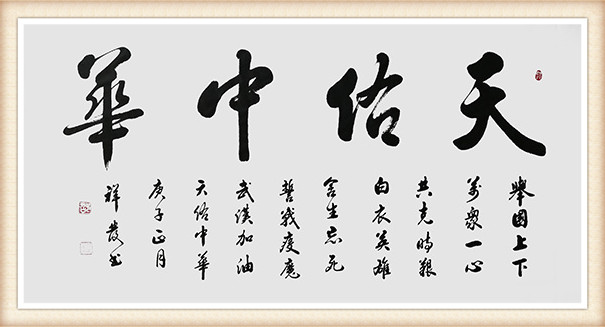 天佑中華
舉国上下
萬眾一心
共克時艱
白衣英雄
舍生忘死
誓戰疫魔
武漢加油
天佑中華
庚子正月
祥发书